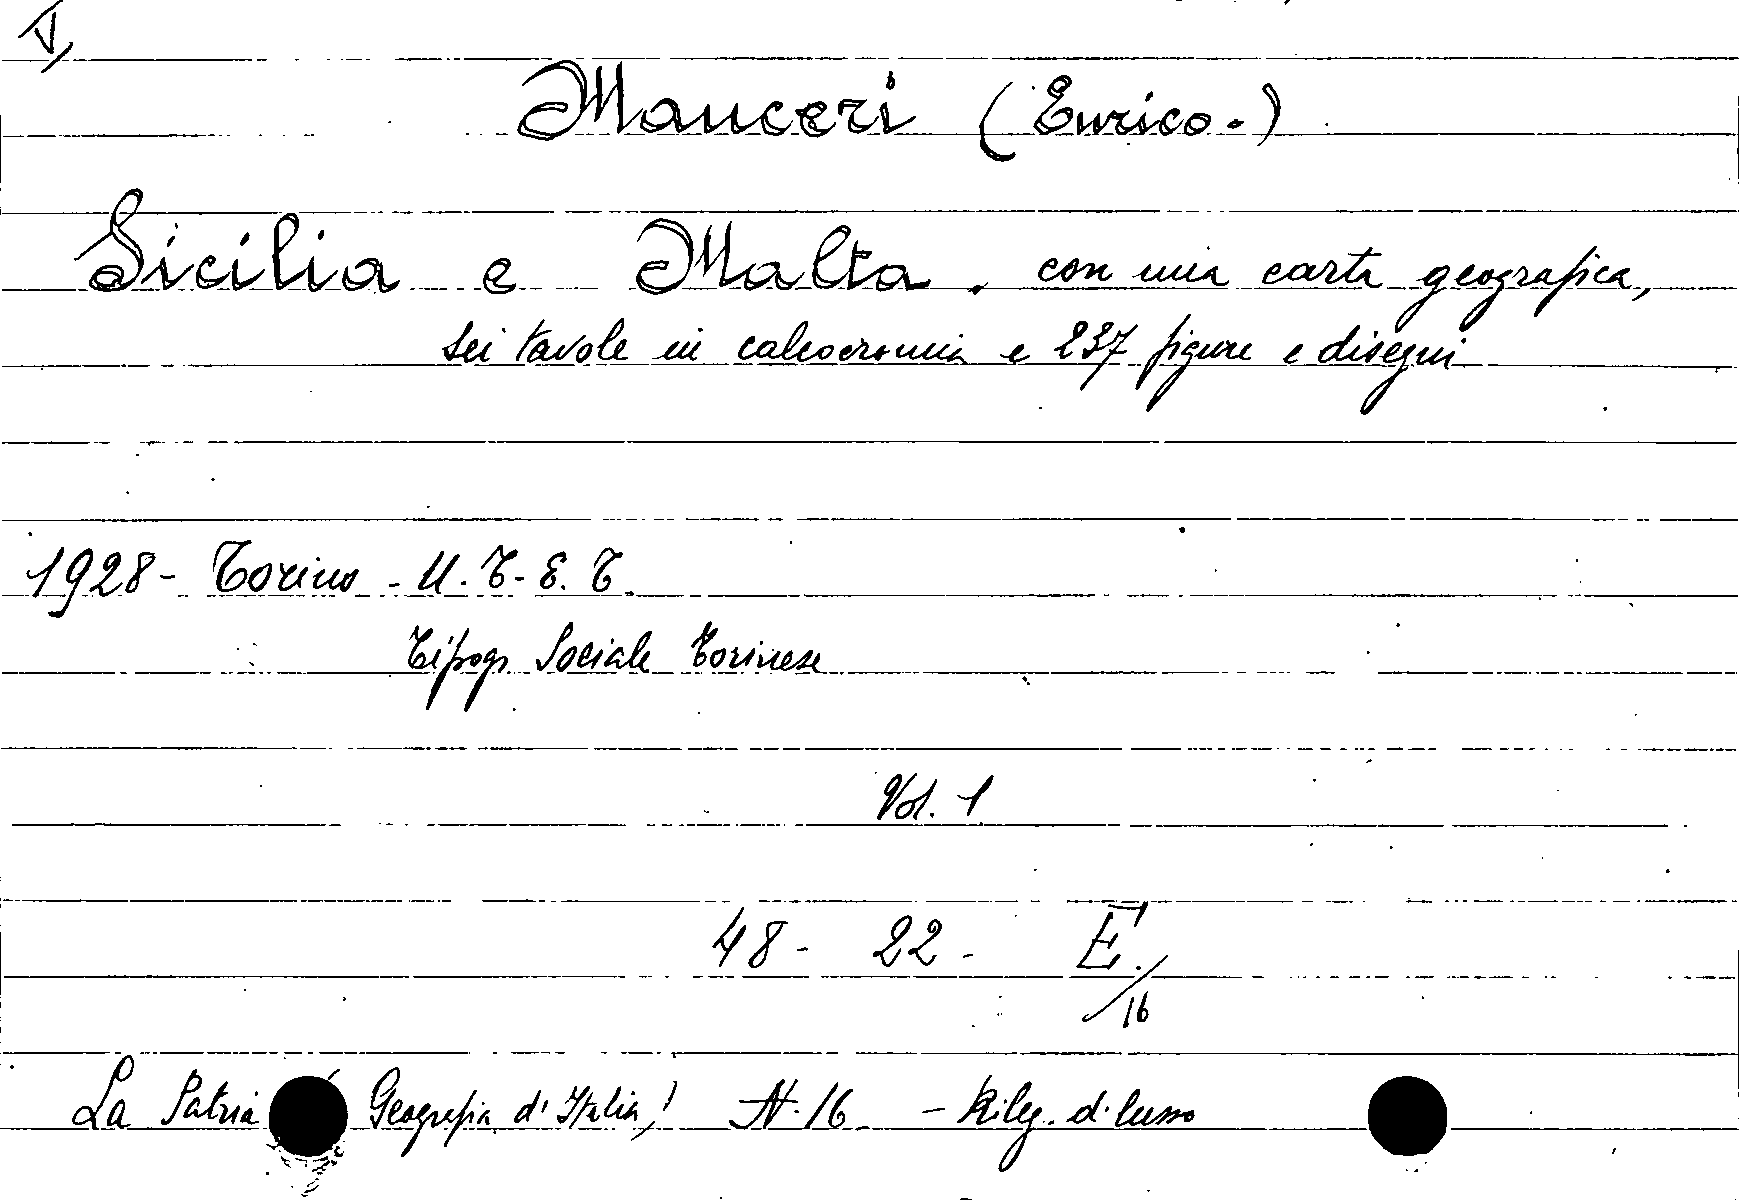 V,
Mauceri (Enrico.)
Sicilia e Malta. con una carta geografica,
sei tavole in calcocromia e 237 figure e disegni
1928- Torino - U.T-E.T.
Tipogr. Sociale Torinese
Vol. 1
48- 22- E./16
La Patria ( Geografia d'Italia) N.16 - Rileg. d. lusso